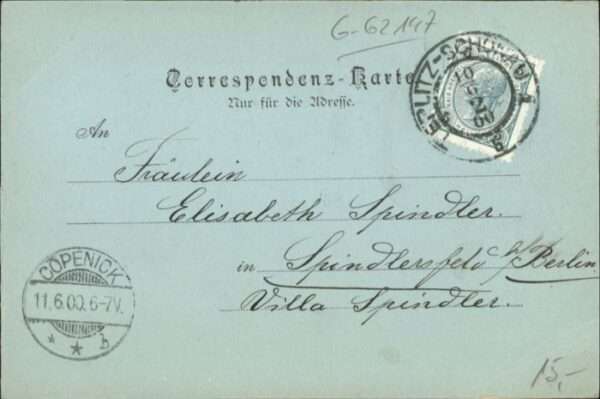 G-62147
Correspondenz-Karte
Nur für die Adresse.
TEPLITZ-SCHÖNAU
10
6
00
An
Fräulein
Elisabeth Spindler.
in Spindlersfeld b/Berlin
Villa Spindler.
CÖPENICK
11.6.00.6-7V.
* * b
15,-